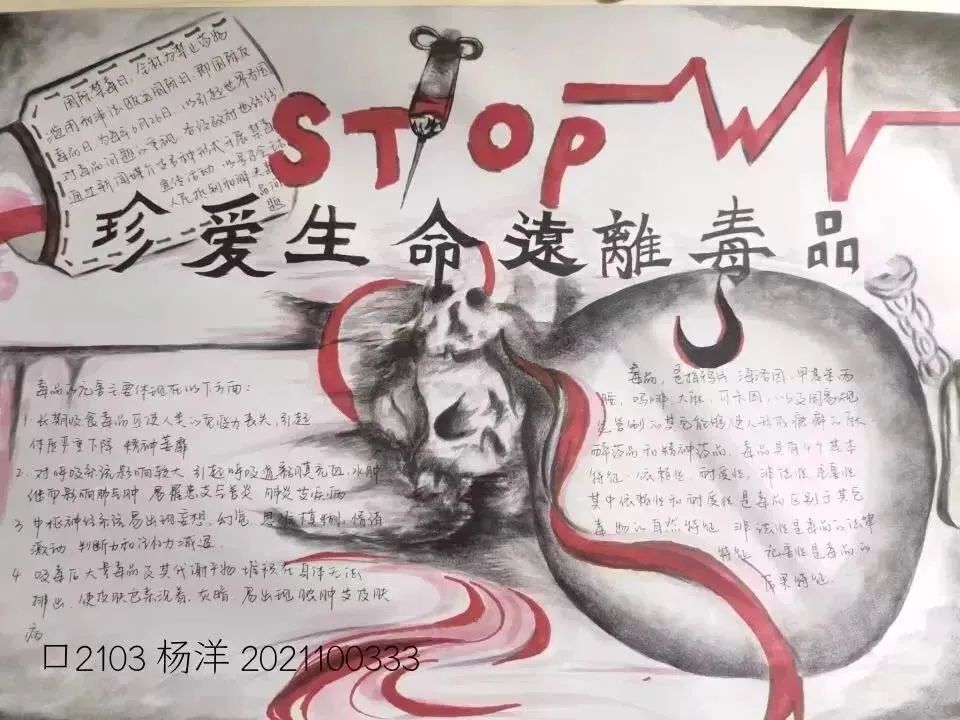 国际禁毒日,全称为禁止药物
滥用和非法贩运国际日,即国际反
毒品日,为每年6月26日,以引起世界各国
对毒品问题的重视,各级政府也纷纷
通过新闻媒介及多种形式开展禁毒
宣传活动,以号召全球
人民抵制和解决毒
品问
题
STOP
珍爱生命遠離毒品
毒品的危害主要体现在以下方面:
1.长期吸食毒品可使人类的免疫力丧失,引起
体质严重下降 精神萎靡
2.对呼吸系统影响较大 引起呼吸道黏膜充血、水肿
继而影响肺与肿 易罹患支气管炎 肺炎等疾病
3 中枢神经系统易出现妄想.幻觉.思维模糊,情绪
激动 判断力和注意力减退
4 吸毒后大量毒品及其代谢产物 堆积在身体无法
排出,使皮肤色素沉着,灰暗,易出现脓肿等皮肤
病
毒品,是指鸦片 海洛因,甲基苯丙
胺,吗啡,大麻,可卡因,以及国家规
定管制的其它能够使人形成瘾癖的麻
醉药品和精神药品,毒品具有4个基本
特征:依赖性,耐受性,非法性,危害性
其中依赖性和耐受性是毒品区别于其它
毒物的自然特征 非法性是毒品的法律
特征 危害性是毒品的
后果特征.
口2103 杨洋 2021100333